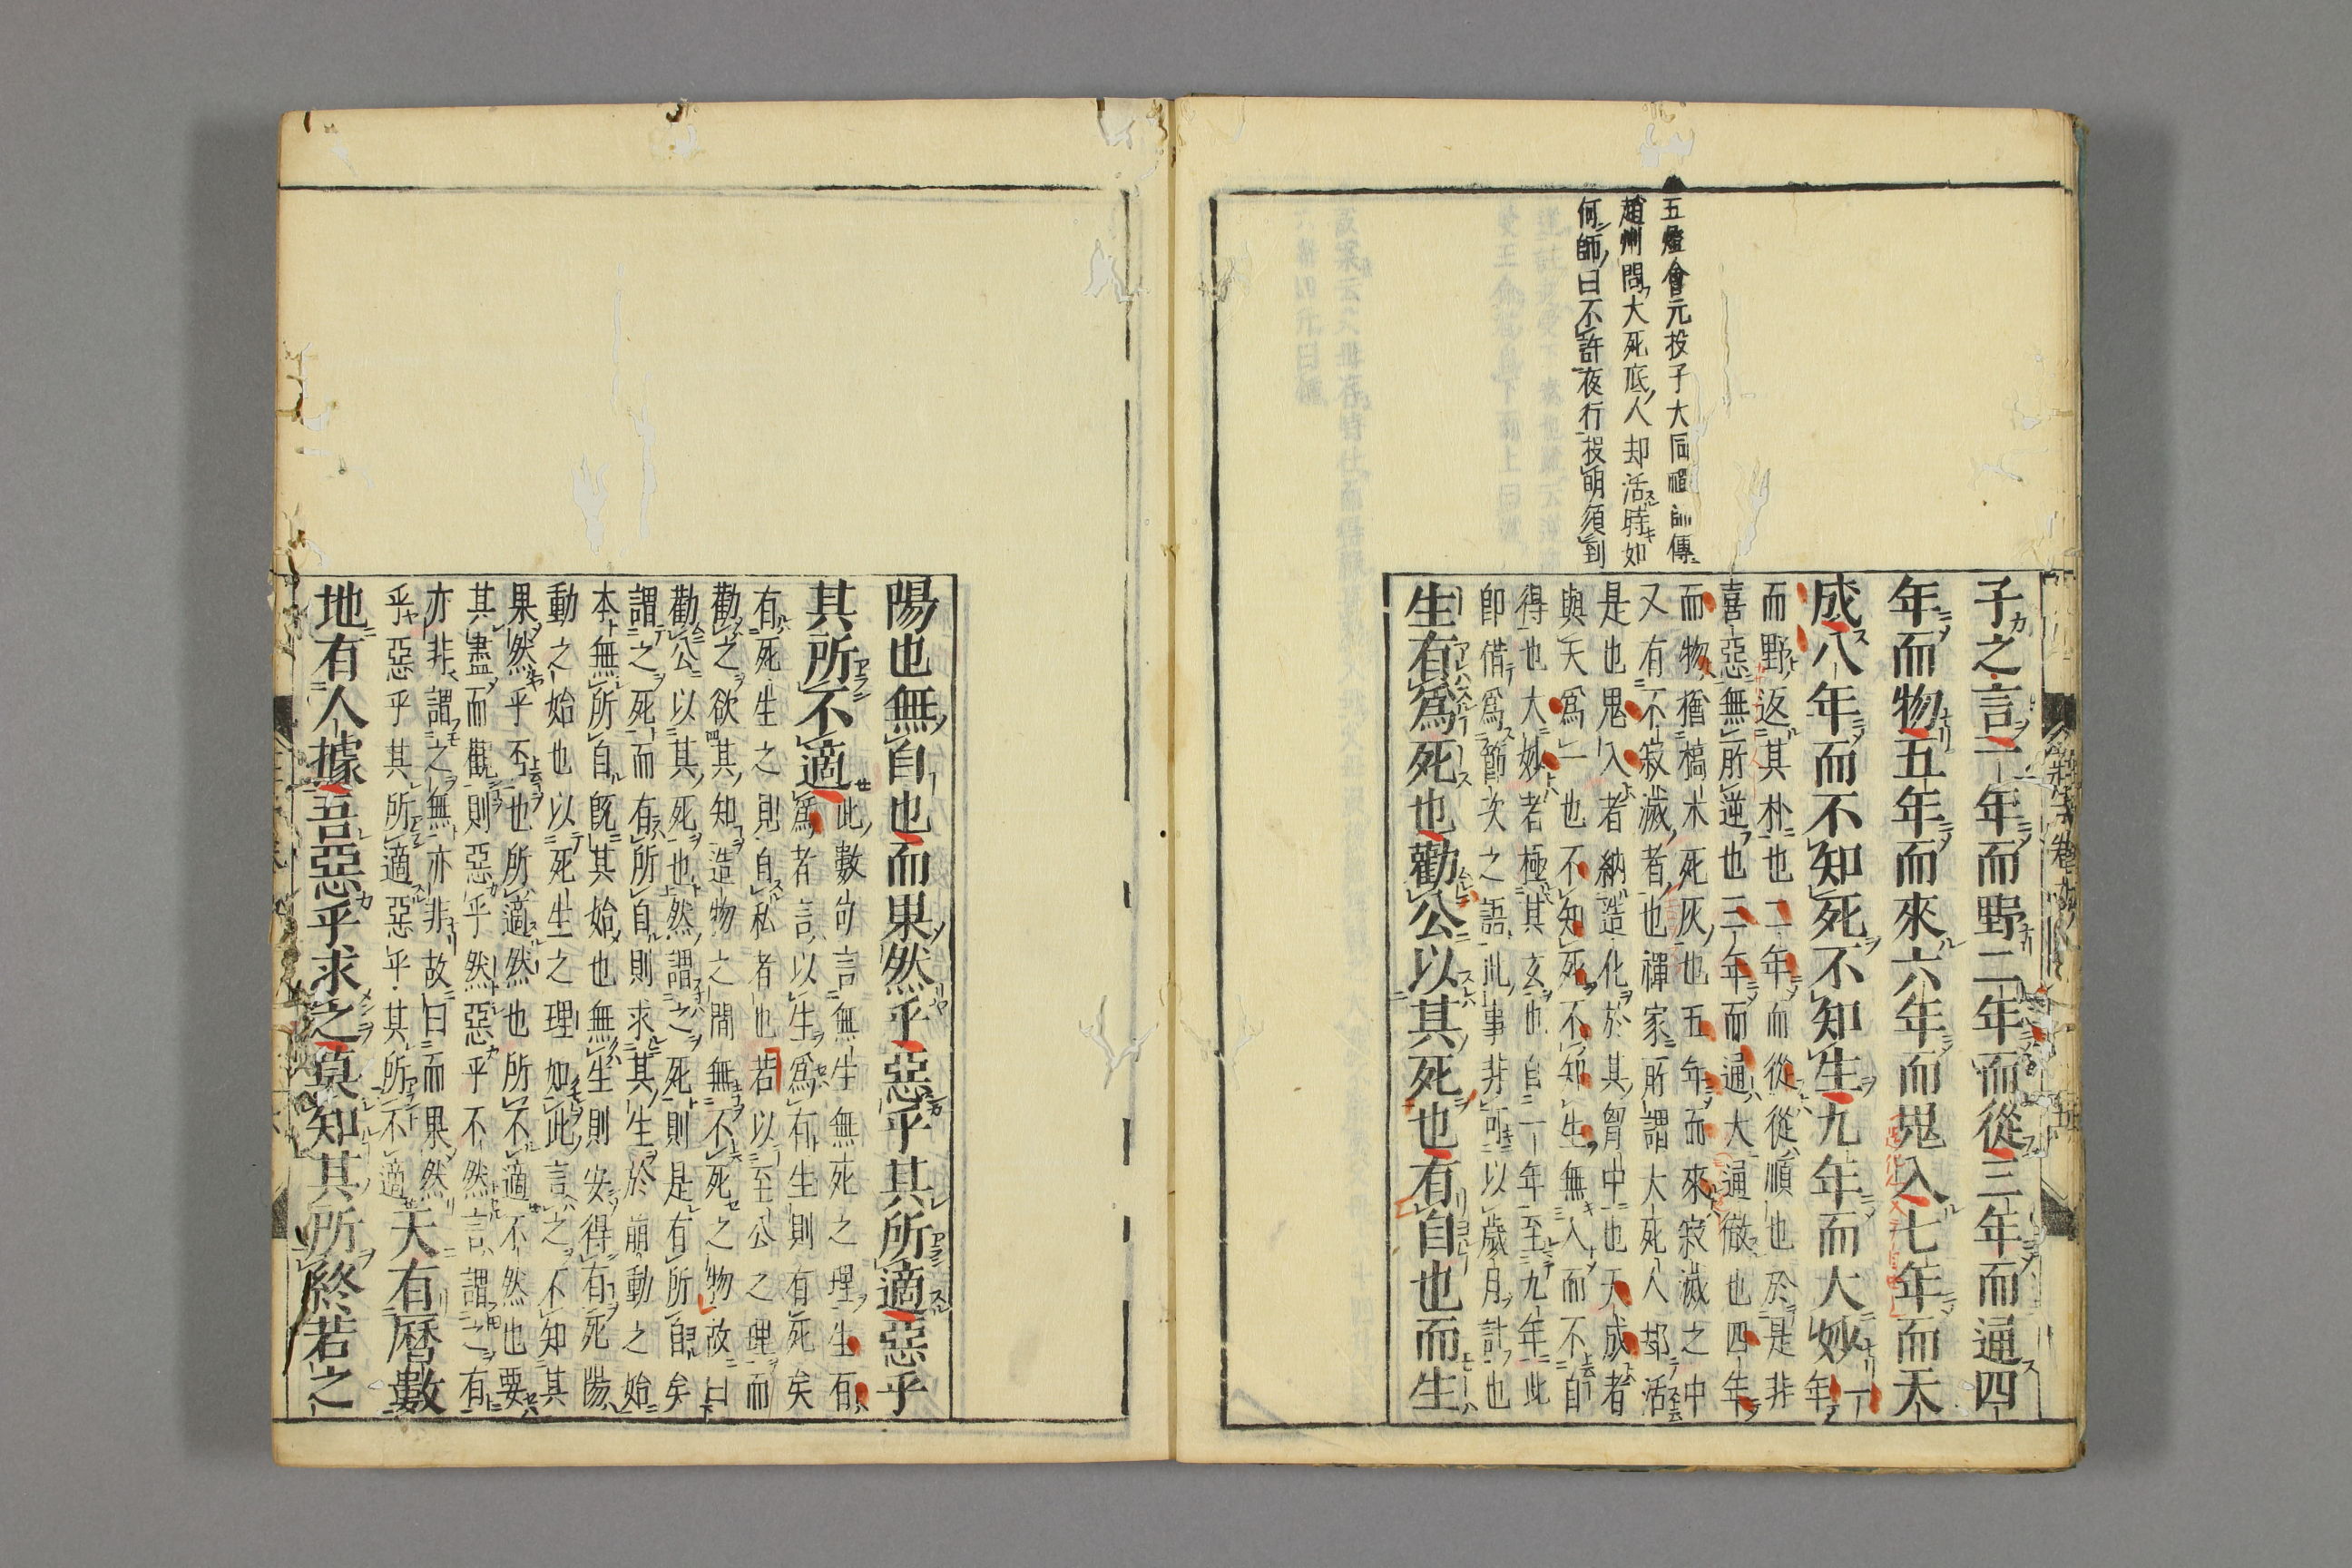 五燈會元投子大同禪師傳
趙州問大死底人却活時如
何師曰不許夜行投明須到
子之言一年而野二年而從三年而通四
年而物五年而來六年而鬼入七年而天
成八年而不知死不知生九年而大妙一年
而野返其朴也二年而從從順也於是非
喜惡無所逆也三年而通大通徹也四年
而物猶槁木死灰也五年而來寂滅之中
又有不寂滅者也禪家所謂大死人却活
是也鬼入者納造化於其胷中也天成者
與天爲一也不知死不知生無入而不自
得也大妙者極其玄也自一年至九年此
即借爲節次之語此事非可以歲月計也
生有爲死也勸公以其死也有自也而生
陽也無自也而果然乎惡乎其所適惡乎
其所不適此數句言無生無死之理生有
爲者言以生爲有生則有死矣
有死生之則自私者也若以至公之理而
勸之欲其知造物之間無不死之物故曰
勸公以其死也然謂之死則是有所自矣
謂之死而有所自則求其生於崩動之始
本無所自旣其始也無生則安得有死陽
動之始也以死生之理如此言之不知其
果然乎不也所適然也所不適不然也要
其盡而觀則惡乎然惡乎不然言謂之有
亦非謂之無亦非故曰而果然
乎惡乎其所適惡乎其所不適天有曆數
地有人據吾惡乎求之莫知其所終若之